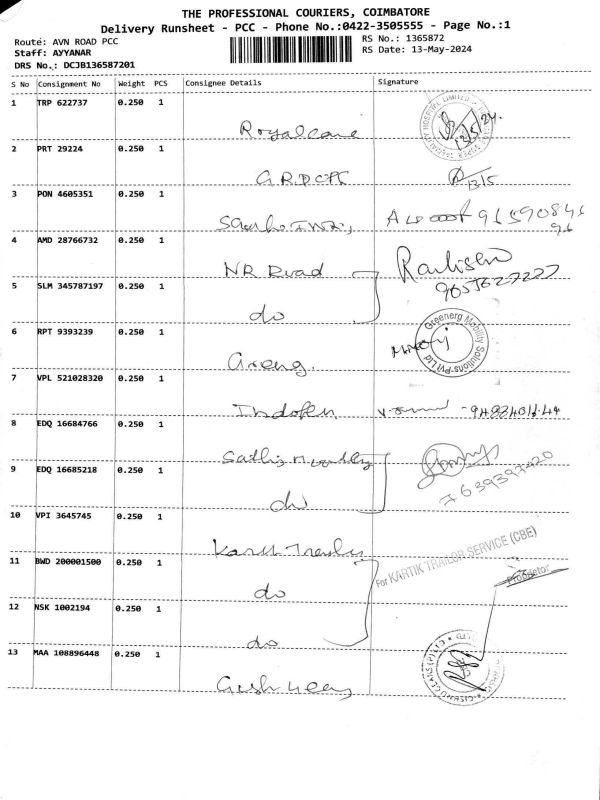 THE PROFESSIONAL COURIERS, COIMBATORE
Delivery Runsheet - PCC - Phone No.:0422-3505555 - Page No.:1
Route: AVN ROAD PCC
RS No.: 1365872
Staff: AYYANAR
RS Date: 13-May-2024
DRS No.: DCJB136587201
S No Consignment No Weight PCS Consignee Details Signature
1 TRP 622737 0.250 1
Royalcare
2 PRT 29224 0.250 1
13/5
3 PON 4605351 0.250 1
4 AMD 28766732 0.250 1
NR Road
5 SLM 345787197 0.250 1
9655627227
do
6 RPT 9393239 0.250 1
Greenerg Mobility Solutions (P) Ltd
7 VPL 521028320 0.250 1
8 EDQ 16684766 0.250 1
9 EDQ 16685218 0.250 1
do
10 VPI 3645745 0.250 1
11 BWD 200001500 0.250 1
For KARTIK TRAILOR SERVICE (CBE)
Proprietor
do
12 NSK 1002194 0.250 1
do
13 MAA 108896448 0.250 1